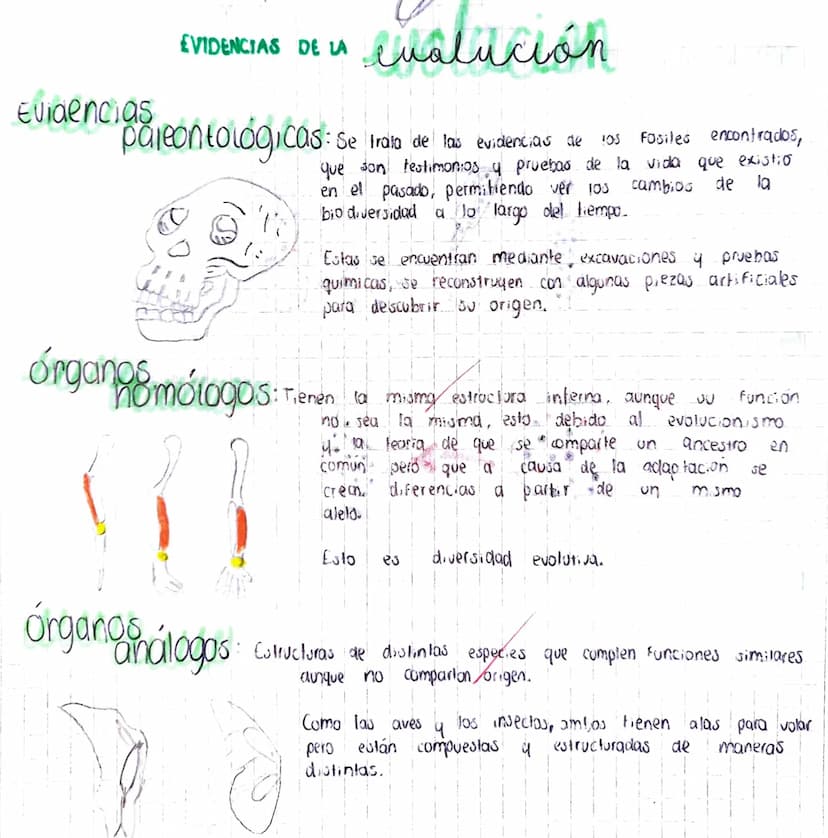 EVIDENCIAS DE LA evolución
Evidencias
paleontológicas: Se trata de las evidencias de los fosiles encontrados,
que son testimonios y pruebas de la vida que existió
en el pasado, permitiendo ver los cambios de la
biodiversidad a lo largo del tiempo.
Estas se encuentran mediante excavaciones y pruebas
quimicas, se reconstruyen con algunas piezas artificiales
para descubrir su origen.
Órganos
homólogos: Tienen la misma estructura interna, aunque su función
no sea la misma, esto debido al evolucionismo
y la teoria de que se comparte un ancestro en
común pero que a causa de la adaptacion se
crean diferencias a partir de un mismo
alelo.
Esto es diversidad evolutiva.
Órganos
análogos: Estructuras de distintas especies que complen funciones similares
aunque no compartan origen.
Como las aves y los insectos, ambos tienen alas para volar
pero están compuestas y estructuradas de maneras
distintas.